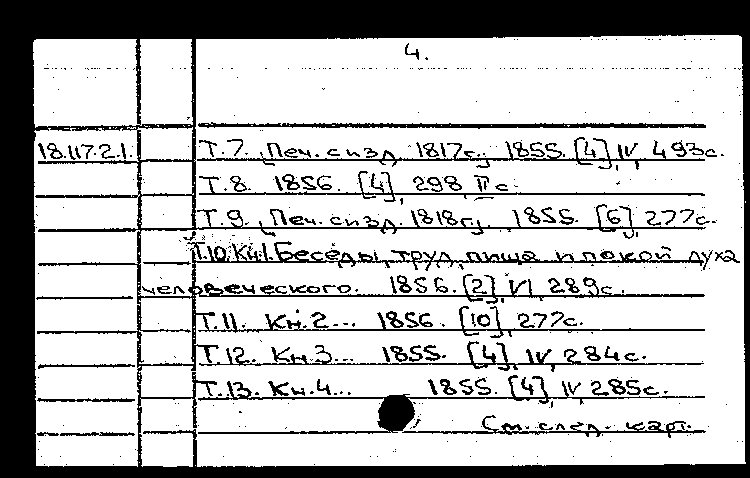 4.
18.117.2.1. Т.7. [Печ. с изд. 1817г.] 1855. [4], IV, 493с.
Т.8. 1856. [4], 298, II с.
Т.9. [Печ. с изд. 1818г.] 1855. [6], 277с.
Т.10. Кн.1. Беседы, труд, пища и покой духа
человеческого. 1856. [2], VI, 289с.
Т.11. Кн.2... 1856. [10], 277с.
Т.12. Кн.3... 1855. [4], IV, 284с.
Т.13. Кн.4... 1855. [4], IV, 285с.
См. след. карт.